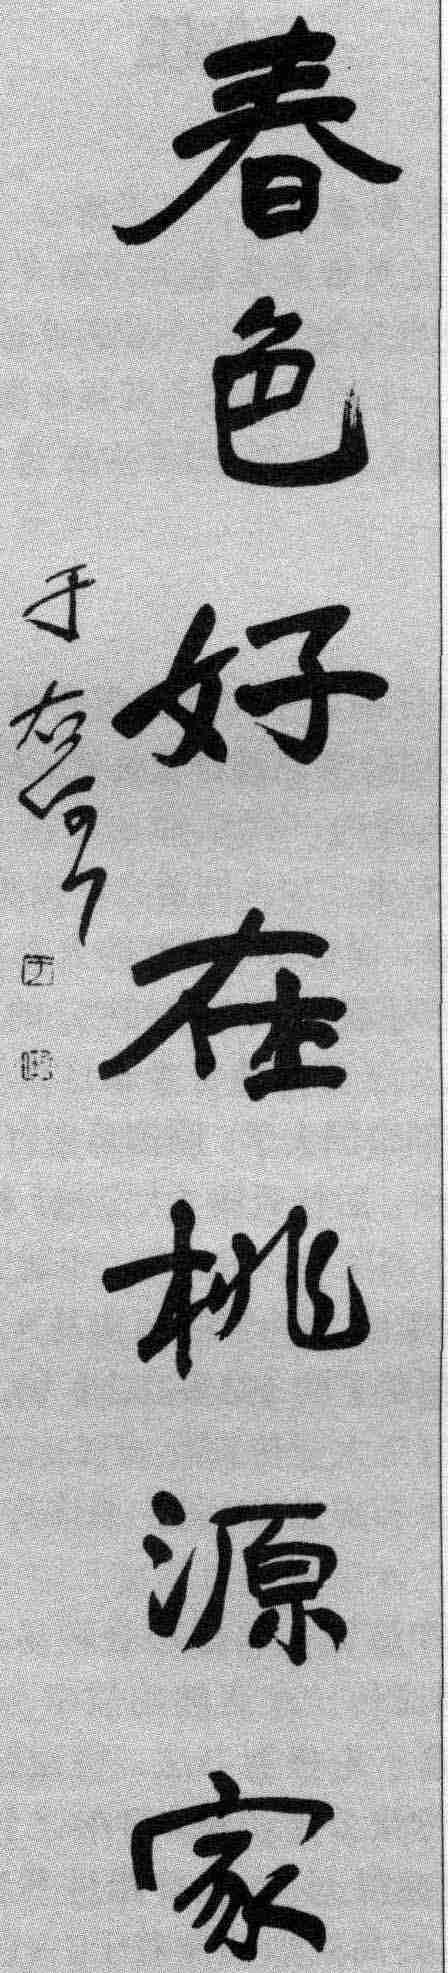 春色好在桃源家
于右任